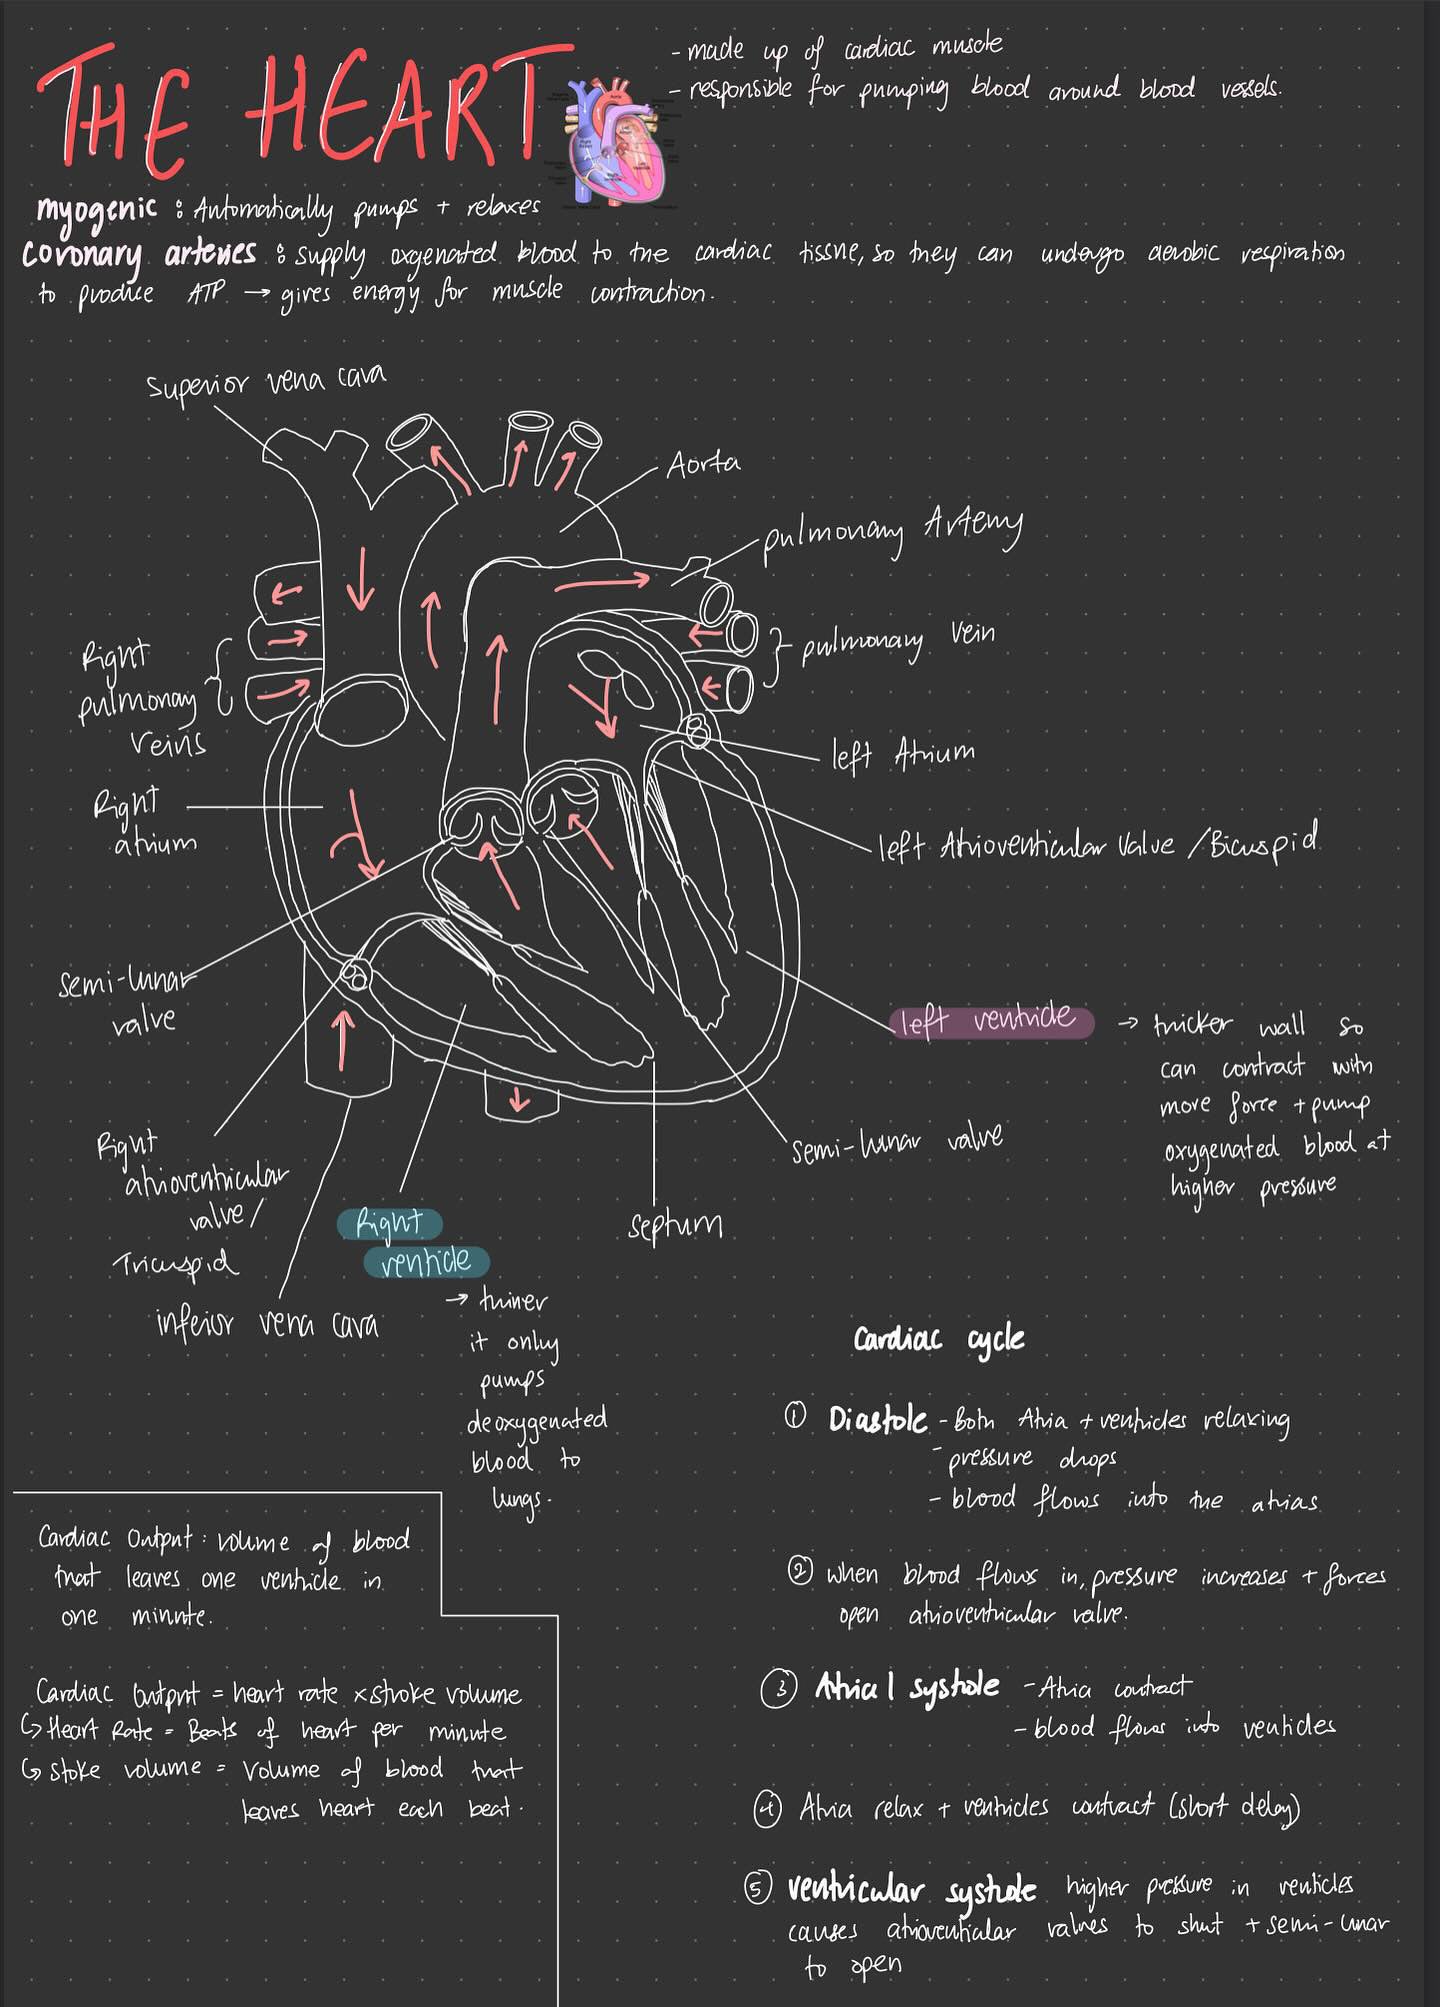 THE HEART
- made up of cardiac muscle
- responsible for pumping blood around blood vessels.
myogenic : Automatically pumps + relaxes
Coronary arteries : supply oxgenated blood to the cardiac tissue, so they can undergo aerobic respiration
to produce ATP → gives energy for muscle contraction.
Superior vena cava
Aorta
pulmonary Artery
pulmonary Vein
Right
pulmonary
Veins
left Atrium
Right
atrium
left Atrioventricular Valve / Bicuspid
semi-lunar
valve
left ventricle → thicker wall so
can contract with
more force + pump
oxygenated blood at
higher pressure
semi-lunar valve
Right
atrioventricular
valve /
Tricuspid
septum
Right
ventricle
→ thiner
it only
pumps
deoxygenated
blood to
lungs.
inferior vena cava
Cardiac cycle
① Diastole - Both Atria + ventricles relaxing
- pressure drops
- blood flows into the atrias
② when blood flows in, pressure increases + forces
open atrioventricular valve.
③ Atrial systole - Atria contract
- blood flows into ventricles
④ Atria relax + ventricles contract (short delay)
⑤ ventricular systole higher pressure in ventricles
causes atrioventricular valves to shut + semi-lunar
to open
Cardiac Output : volume of blood
that leaves one ventricle in
one minute.
Cardiac Output = heart rate x stroke volume
↳ Heart Rate = Beats of heart per minute
↳ stoke volume = Volume of blood that
leaves heart each beat.